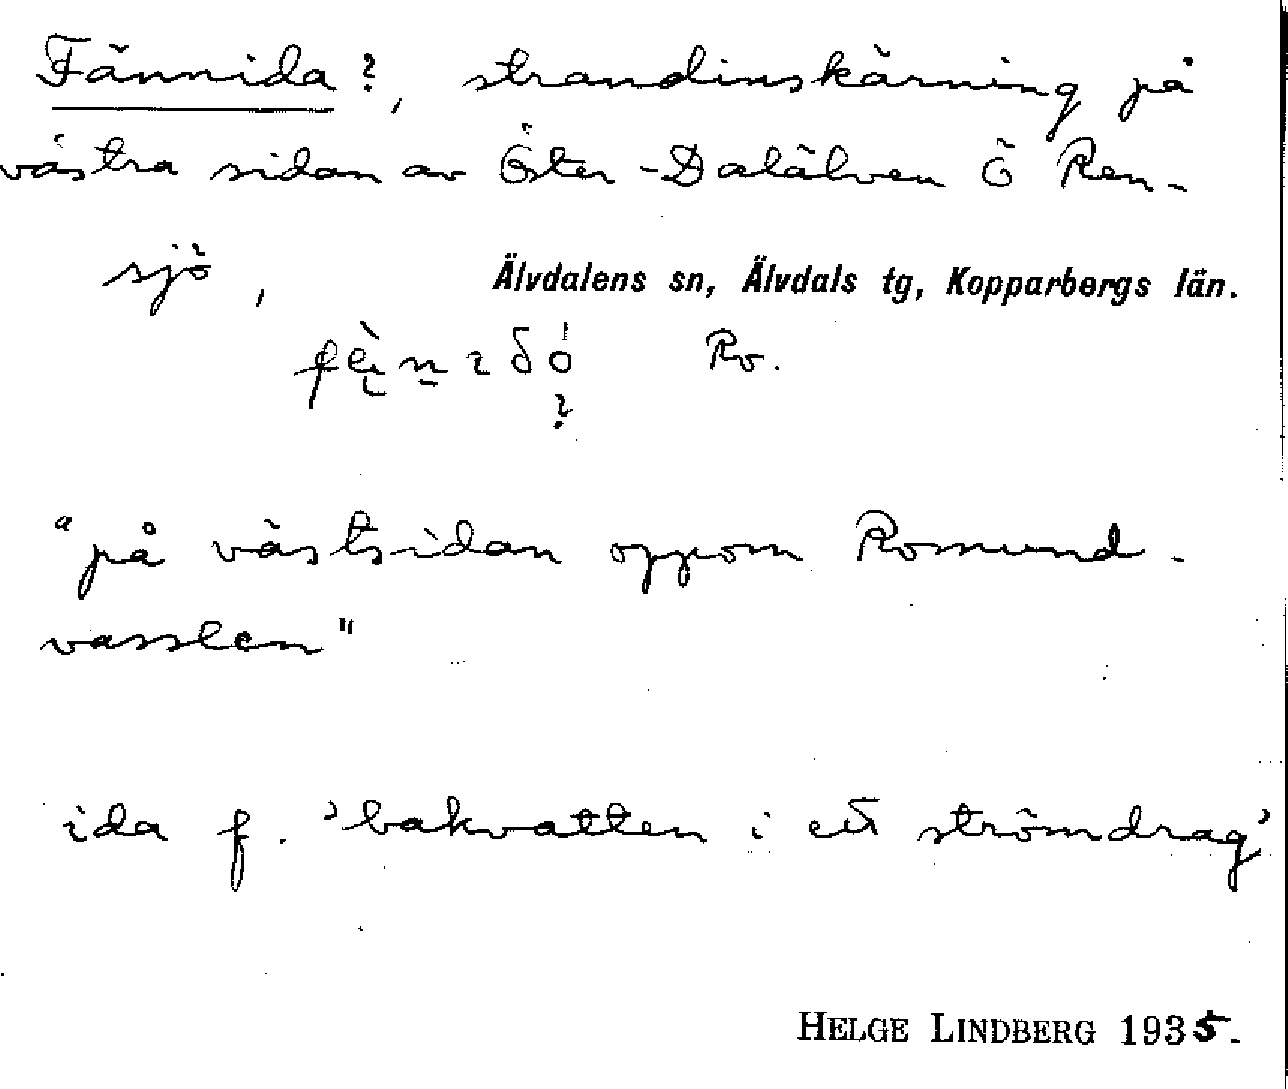 Fännida?, strandinskärning på
västra sidan av Öster-Dalälven Ö Ren-
sjö, Älvdalens sn, Älvdals tg, Kopparbergs län.
Ro.
?
"på västsidan oppom Romund-
vasslen"
ida f. 'bakvatten i ett strömdrag'
HELGE LINDBERG 1935.